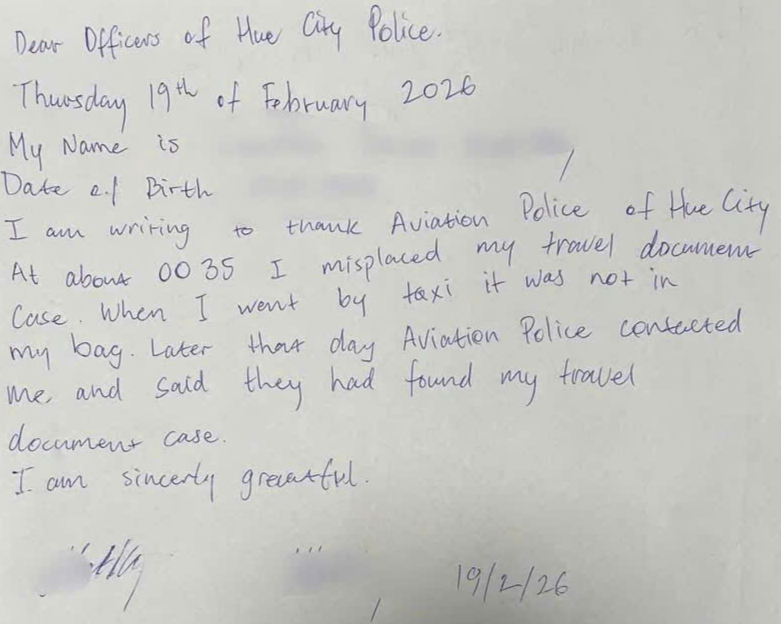 Dear Officers of Hue City Police.
Thursday 19th of February 2026
My Name is
Date of Birth
I am writing to thank Aviation Police of Hue City
At about 0035 I misplaced my travel document
Case. When I went by taxi it was not in
my bag. Later that day Aviation Police contacted
me and said they had found my travel
document case.
I am sincerly greatful.
19/2/26